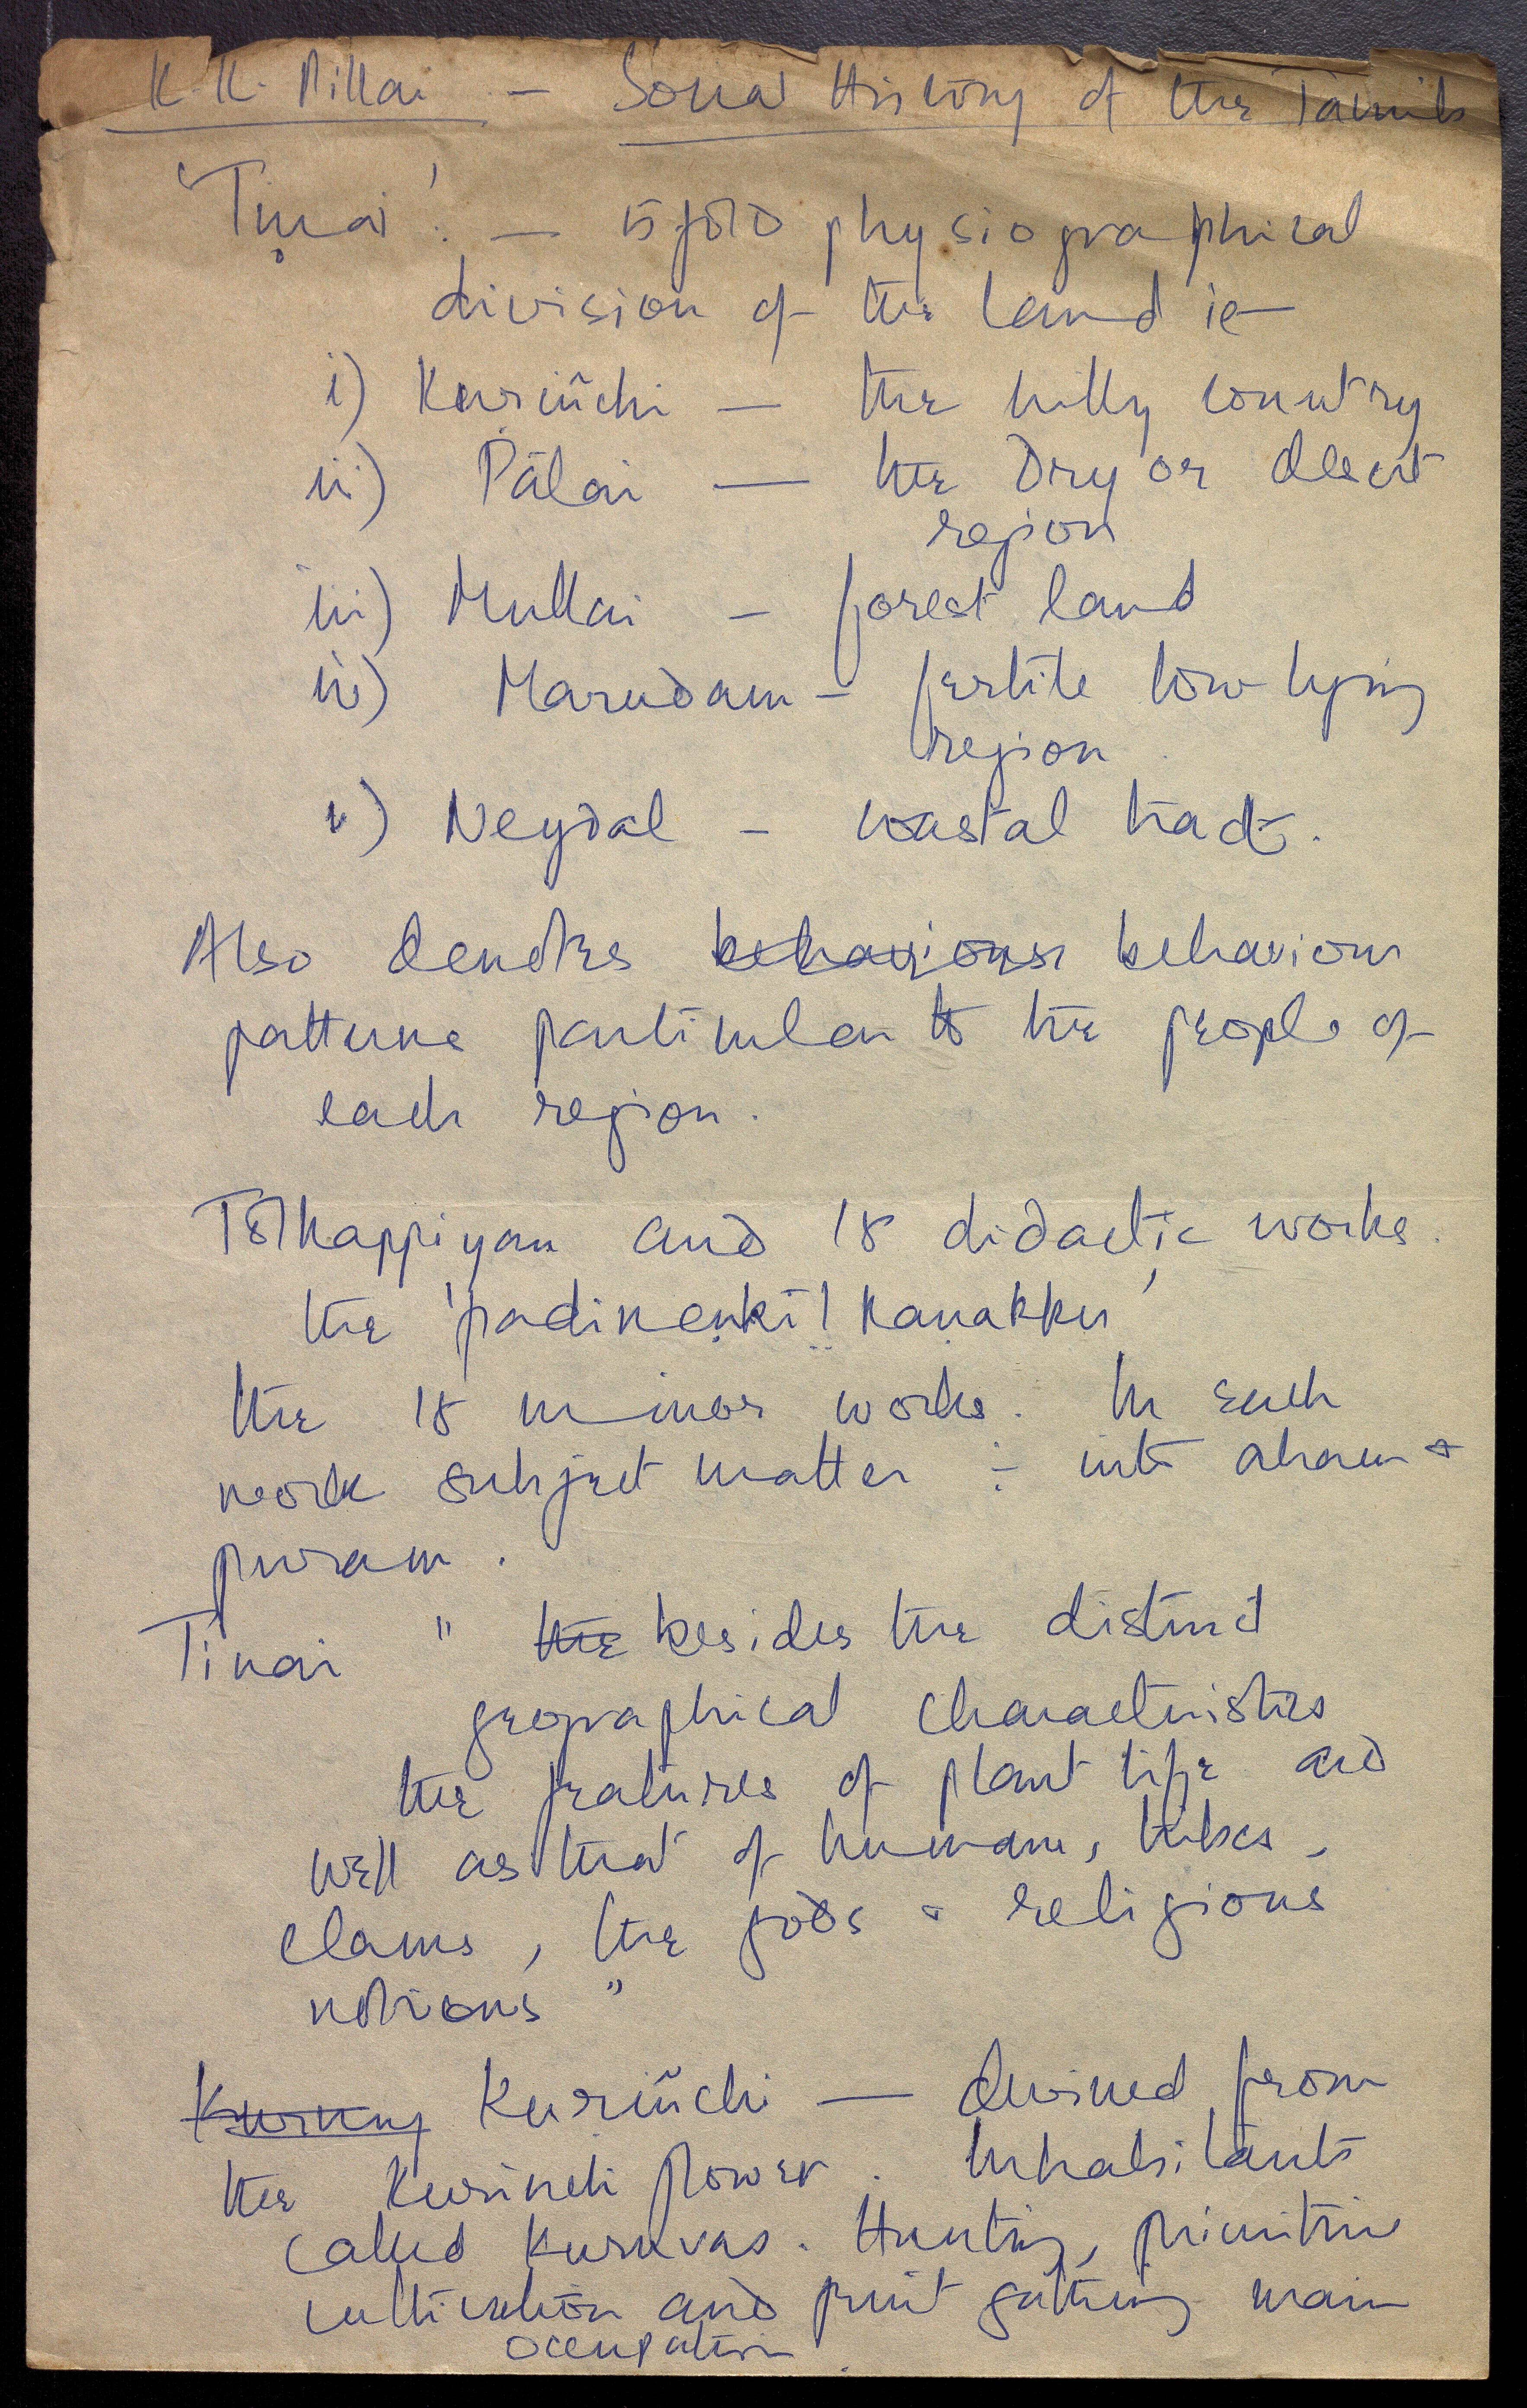 K.K. Pillai — Social History of the Tamils
'Tiṇai': — 5 fold physiographical
division of the land ie
i) Kuriñchi — the hilly country
ii) Pālai — the Dry or desert
region
iii) Mullai — forest land
iv) Marudam — fertile low lying
region
v) Neydal — coastal tract.
Also denotes behaviour behaviour
patterns particular to the people of
each region.
Tolkappiyam and 18 didactic works.
the 'padineṇkīḻ kaṇakku'
the 18 minor works. In each
work subject matter ÷ into aham &
puram.
Tinai " the besides the distinct
geographical characteristics
the features of plant life as
well as that of humans, tribes,
clans, the gods & religious
notions"
Kurung Kuriñchi — derived from
the Kurinchi flower. Inhabitants
called Kuruvas. Hunting, primitive
cultivation and fruit gathering main
occupation.